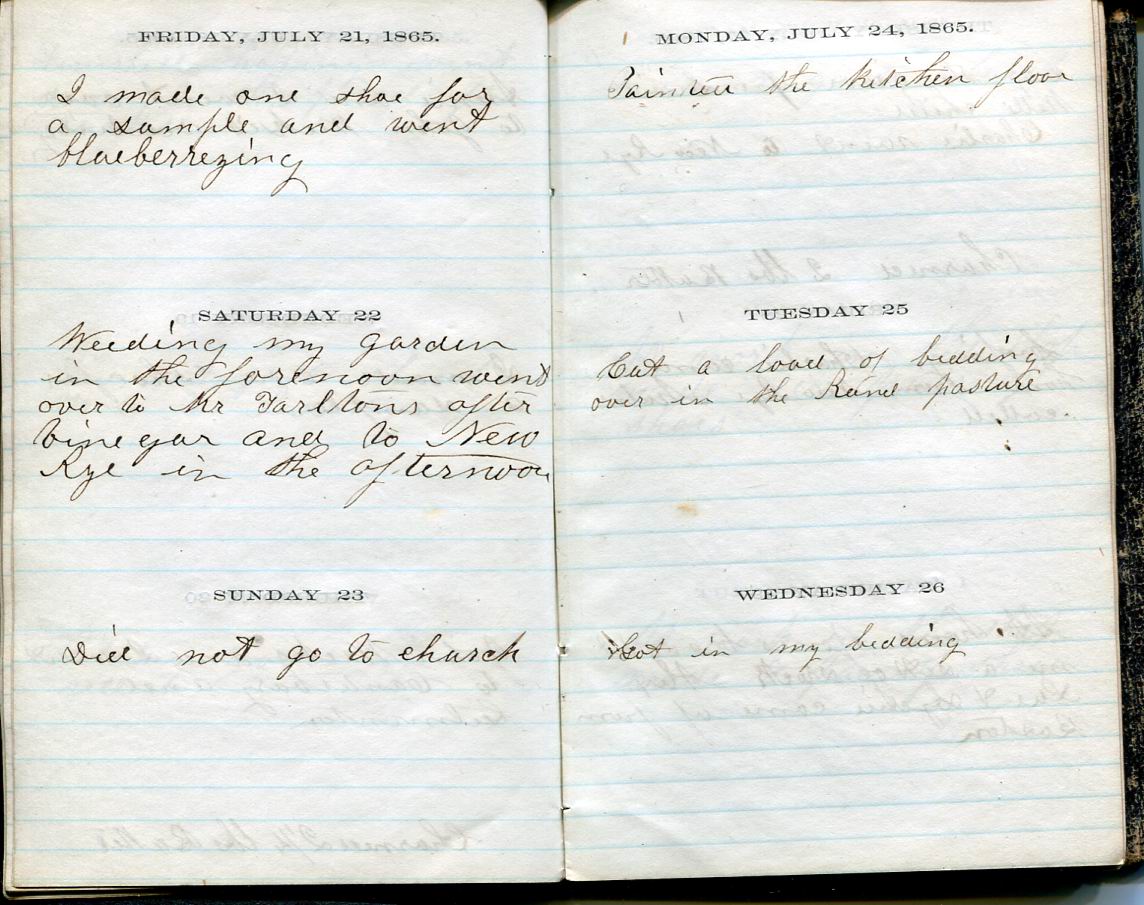 FRIDAY, JULY 21, 1865.
I made one shoe for
a sample and went
blueberrezing
SATURDAY 22
Weeding my garden
in the forenoon went
over to Mr Tarltons after
vinegar and to New
Rye in the afternoon
SUNDAY 23
Did not go to church
MONDAY, JULY 24, 1865.
Painted the kitchen floor
TUESDAY 25
Cut a load of bedding
over in the Rand pasture
WEDNESDAY 26
Got in my bedding